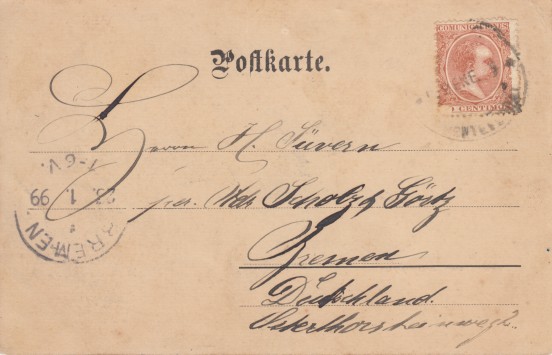 COMUNICACIONES
1 CENTIMO
Postkarte.
Herrn H. Süvern
per. Adr. Scholz & Görtz
Bremen
Deutschland.
BREMEN
23. 1. 99
1-6 V.